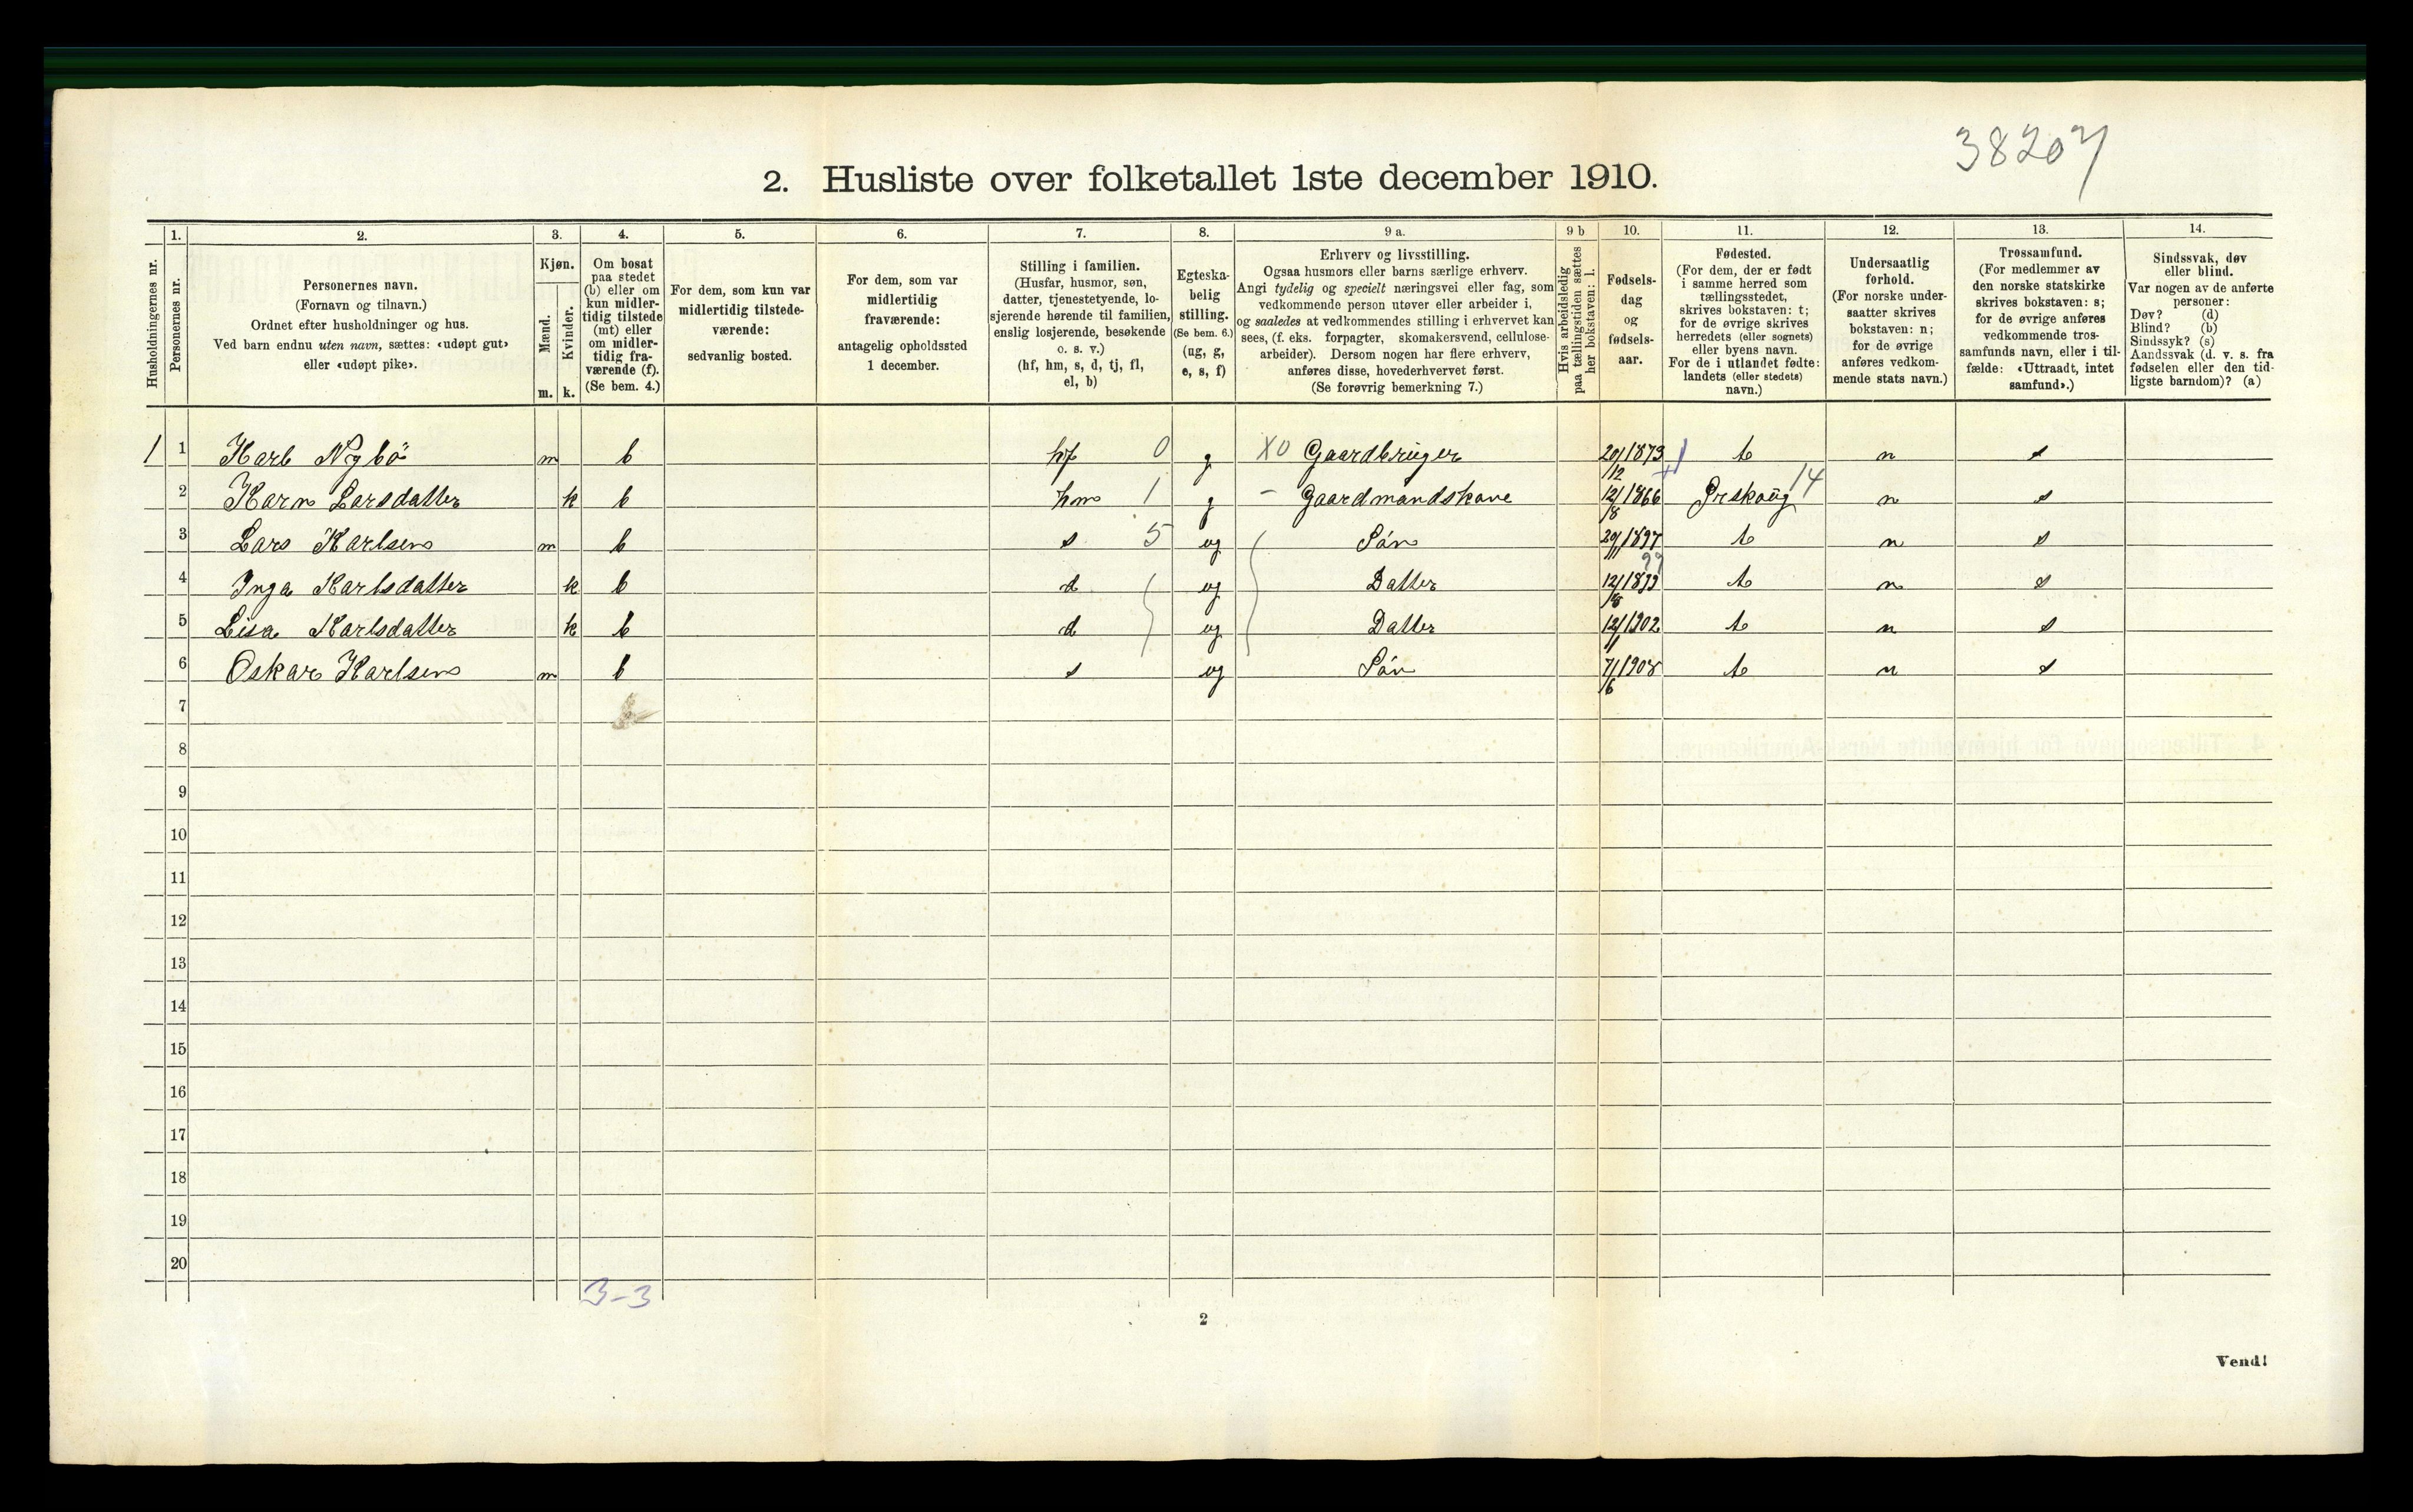 38207
2. Husliste over folketallet 1ste december 1910.
Husholdningernes nr.
1.
Personernes nr.
2.
Personernes navn.
(Fornavn og tilnavn.)
Ordnet efter husholdninger og hus.
Ved barn endnu uten navn, sættes: «udøpt gut»
eller «udøpt pike».
3.
Kjøn.
Mænd.
Kvinder.
m. k.
4.
Om bosat
paa stedet
(b) eller om
kun midler-
tidig tilstede
(mt) eller
om midler-
tidig fra-
værende (f).
(Se bem. 4.)
5.
For dem, som kun var
midlertidig tilstede-
værende:
sedvanlig bosted.
6.
For dem, som var
midlertidig
fraværende:
antagelig opholdssted
1 december.
7.
Stilling i familien.
(Husfar, husmor, søn,
datter, tjenestetyende, lo-
sjerende hørende til familien,
enslig losjerende, besøkende
o. s. v.)
(hf, hm, s, d, tj, fl,
el, b)
8.
Egteska-
belig
stilling.
(Se bem. 6.)
(ug, g,
e, s, f)
9 a.
Erhverv og livsstilling.
Ogsaa husmors eller barns særlige erhverv.
Angi tydelig og specielt næringsvei eller fag, som
vedkommende person utøver eller arbeider i,
og saaledes at vedkommendes stilling i erhvervet kan
sees, (f. eks. forpagter, skomakersvend, cellulose-
arbeider). Dersom nogen har flere erhverv,
anføres disse, hovederhvervet først.
(Se forøvrig bemerkning 7.)
9 b
Hvis arbeidsledig
paa tællingstiden sættes
her bokstaven: l.
10.
Fødsels-
dag
og
fødsels-
aar.
11.
Fødested.
(For dem, der er født
i samme herred som
tællingsstedet,
skrives bokstaven: t;
for de øvrige skrives
herredets (eller sognets)
eller byens navn.
For de i utlandet fødte:
landets (eller stedets)
navn.)
12.
Undersaatlig
forhold.
(For norske under-
saatter skrives
bokstaven: n;
for de øvrige
anføres vedkom-
mende stats navn.)
13.
Trossamfund.
(For medlemmer av
den norske statskirke
skrives bokstaven: s;
for de øvrige anføres
vedkommende tros-
samfunds navn, eller i til-
fælde: «Uttraadt, intet
samfund».)
14.
Sindssvak, døv
eller blind.
Var nogen av de anførte
personer:
Døv? (d)
Blind? (b)
Sindssyk? (s)
Aandssvak (d. v. s. fra
fødselen eller den tid-
ligste barndom)? (a)
1 1 Karl Nybö m b hf 0 g X0 Gaardbruger 20/12 1873 t n s
2 Karn Larsdatter k b hm 1 g - Gaardmandskone 12/8 1866 Ørskoug 14 n s
3 Lars Karlsen m b s 5 ug Sön 29/11 1897 t n s
4 Inga Karlsdatter k b d ug Datter 12/8 1899 99 t n s
5 Lisa Karlsdatter k b d ug Datter 12/1 1902 t n s
6 Oskar Karlsen m b s ug Sön 7/6 1908 t n s
7
8
9
10
11
12
13
14
15
16
17
18
19
20
3-3
2
Vend!